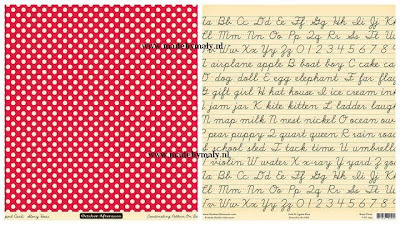 www.madebymaly.nl
www.madebymaly.nl
October Afternoon
Aa Bb Cc Dd Ee Ff Gg Hh Ii Jj K
Mm Nn Oo Pp Qq Rr Ss Tt Uu
Vv Ww Xx Yy Zz 1 2 3 4 5 6 7 8 9
airplane apple B boat boy C cake ca
D dog doll E egg elephant F far flag
gift girl H hat house I ice cream in
J jam jar K kite kitten L ladder laugh
M map milk N nest nickel O ocean our
P pear puppy Q quart queen R rain roa
school sled T tack time U umbrella
violin W water X x-ray Y yard Z
Aa Bb Cc Dd Ee Ff Gg Hh Ii Jj
Mm Nn Oo Pp Qq Rr Ss Tt Uu
Vv Ww Xx Yy Zz 1 2 3 4 5 6 7 8